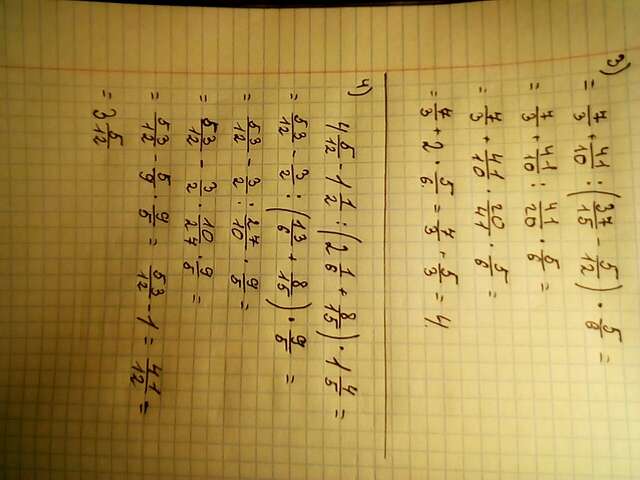 3)
= 7/3 + 41/10 : (37/15 - 5/12) · 5/6 =
= 7/3 + 41/10 : 41/20 · 5/6 =
= 7/3 + 41/10 · 20/41 · 5/6 =
= 7/3 + 2 · 5/6 = 7/3 + 5/3 = 4.
4)
4 5/12 - 1 1/2 : (2 1/6 + 8/15) · 1 4/5 =
= 53/12 - 3/2 : (13/6 + 8/15) · 9/5 =
= 53/12 - 3/2 : 27/10 · 9/5 =
= 53/12 - 3/2 · 10/27 · 9/5 =
= 53/12 - 5/9 · 9/5 = 53/12 - 1 = 41/12 =
= 3 5/12